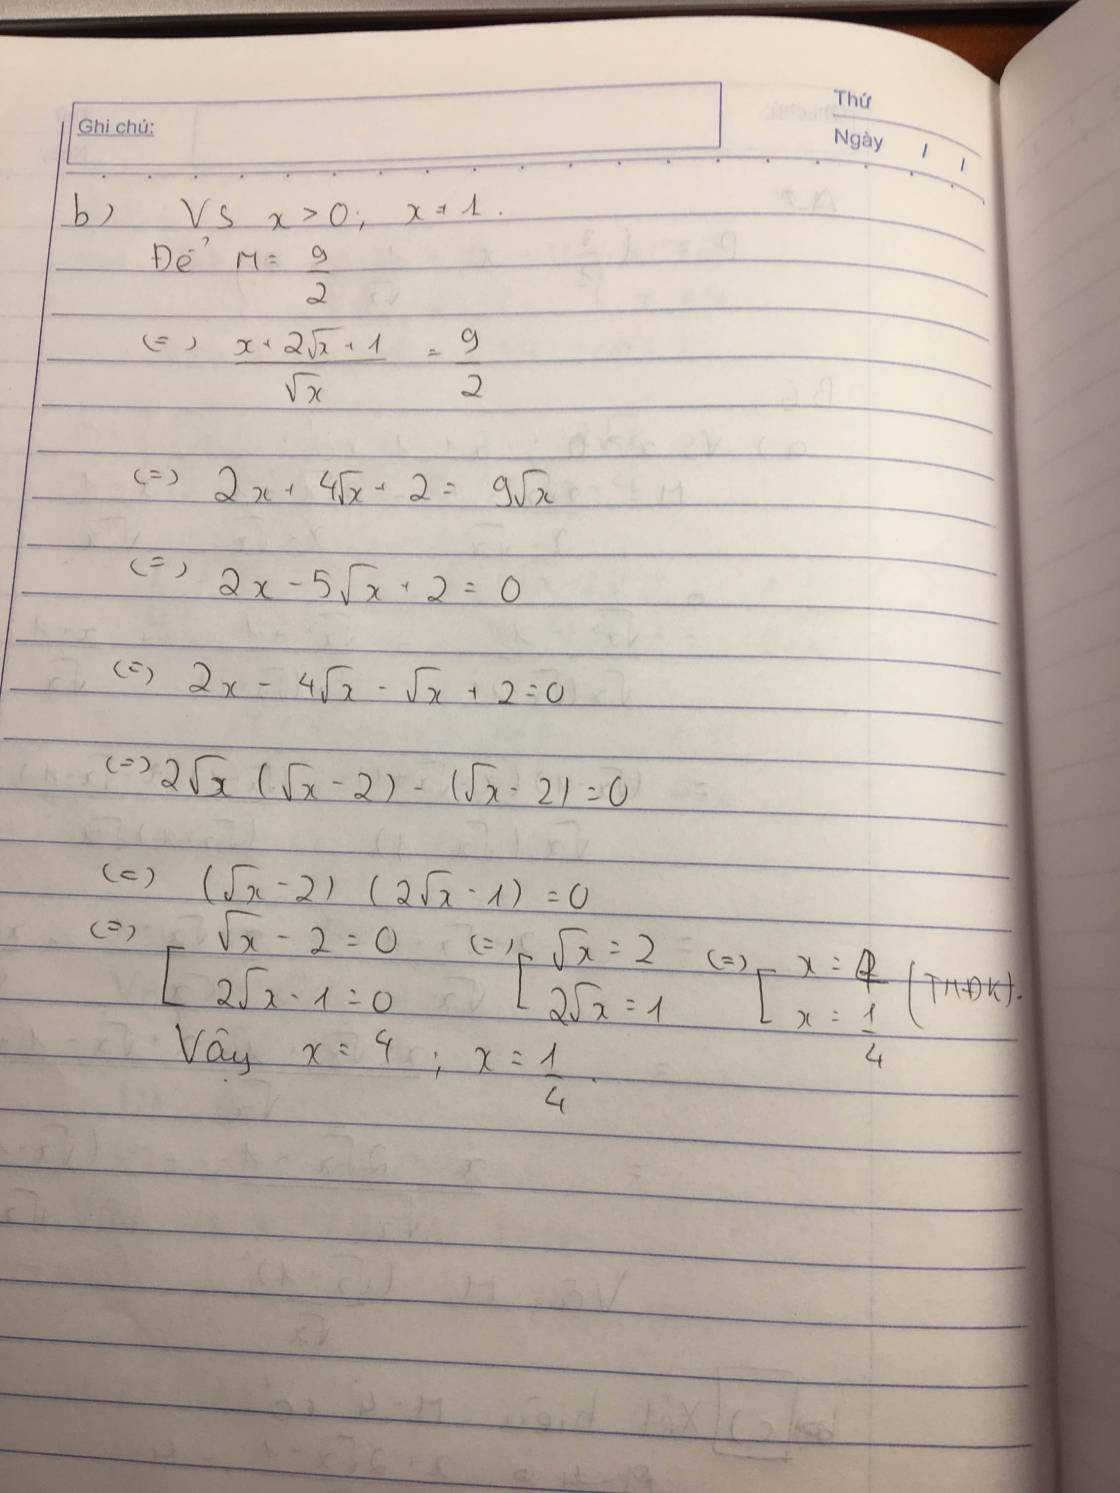 Thứ
Ghi chú:
Ngày / /
b) Vs x > 0; x ≠ 1.
Để M = 9/2
(=) (x + 2√x + 1)/√x = 9/2
(=) 2x + 4√x + 2 = 9√x
(=) 2x - 5√x + 2 = 0
(=) 2x - 4√x - √x + 2 = 0
(=) 2√x (√x - 2) - (√x - 2) = 0
(=) (√x - 2) (2√x - 1) = 0
(=) [ √x - 2 = 0 (=) [ √x = 2 (=) [ x = 4 (TMĐK).
2√x - 1 = 0 2√x = 1 x = 1/4
Vậy x = 4; x = 1/4.